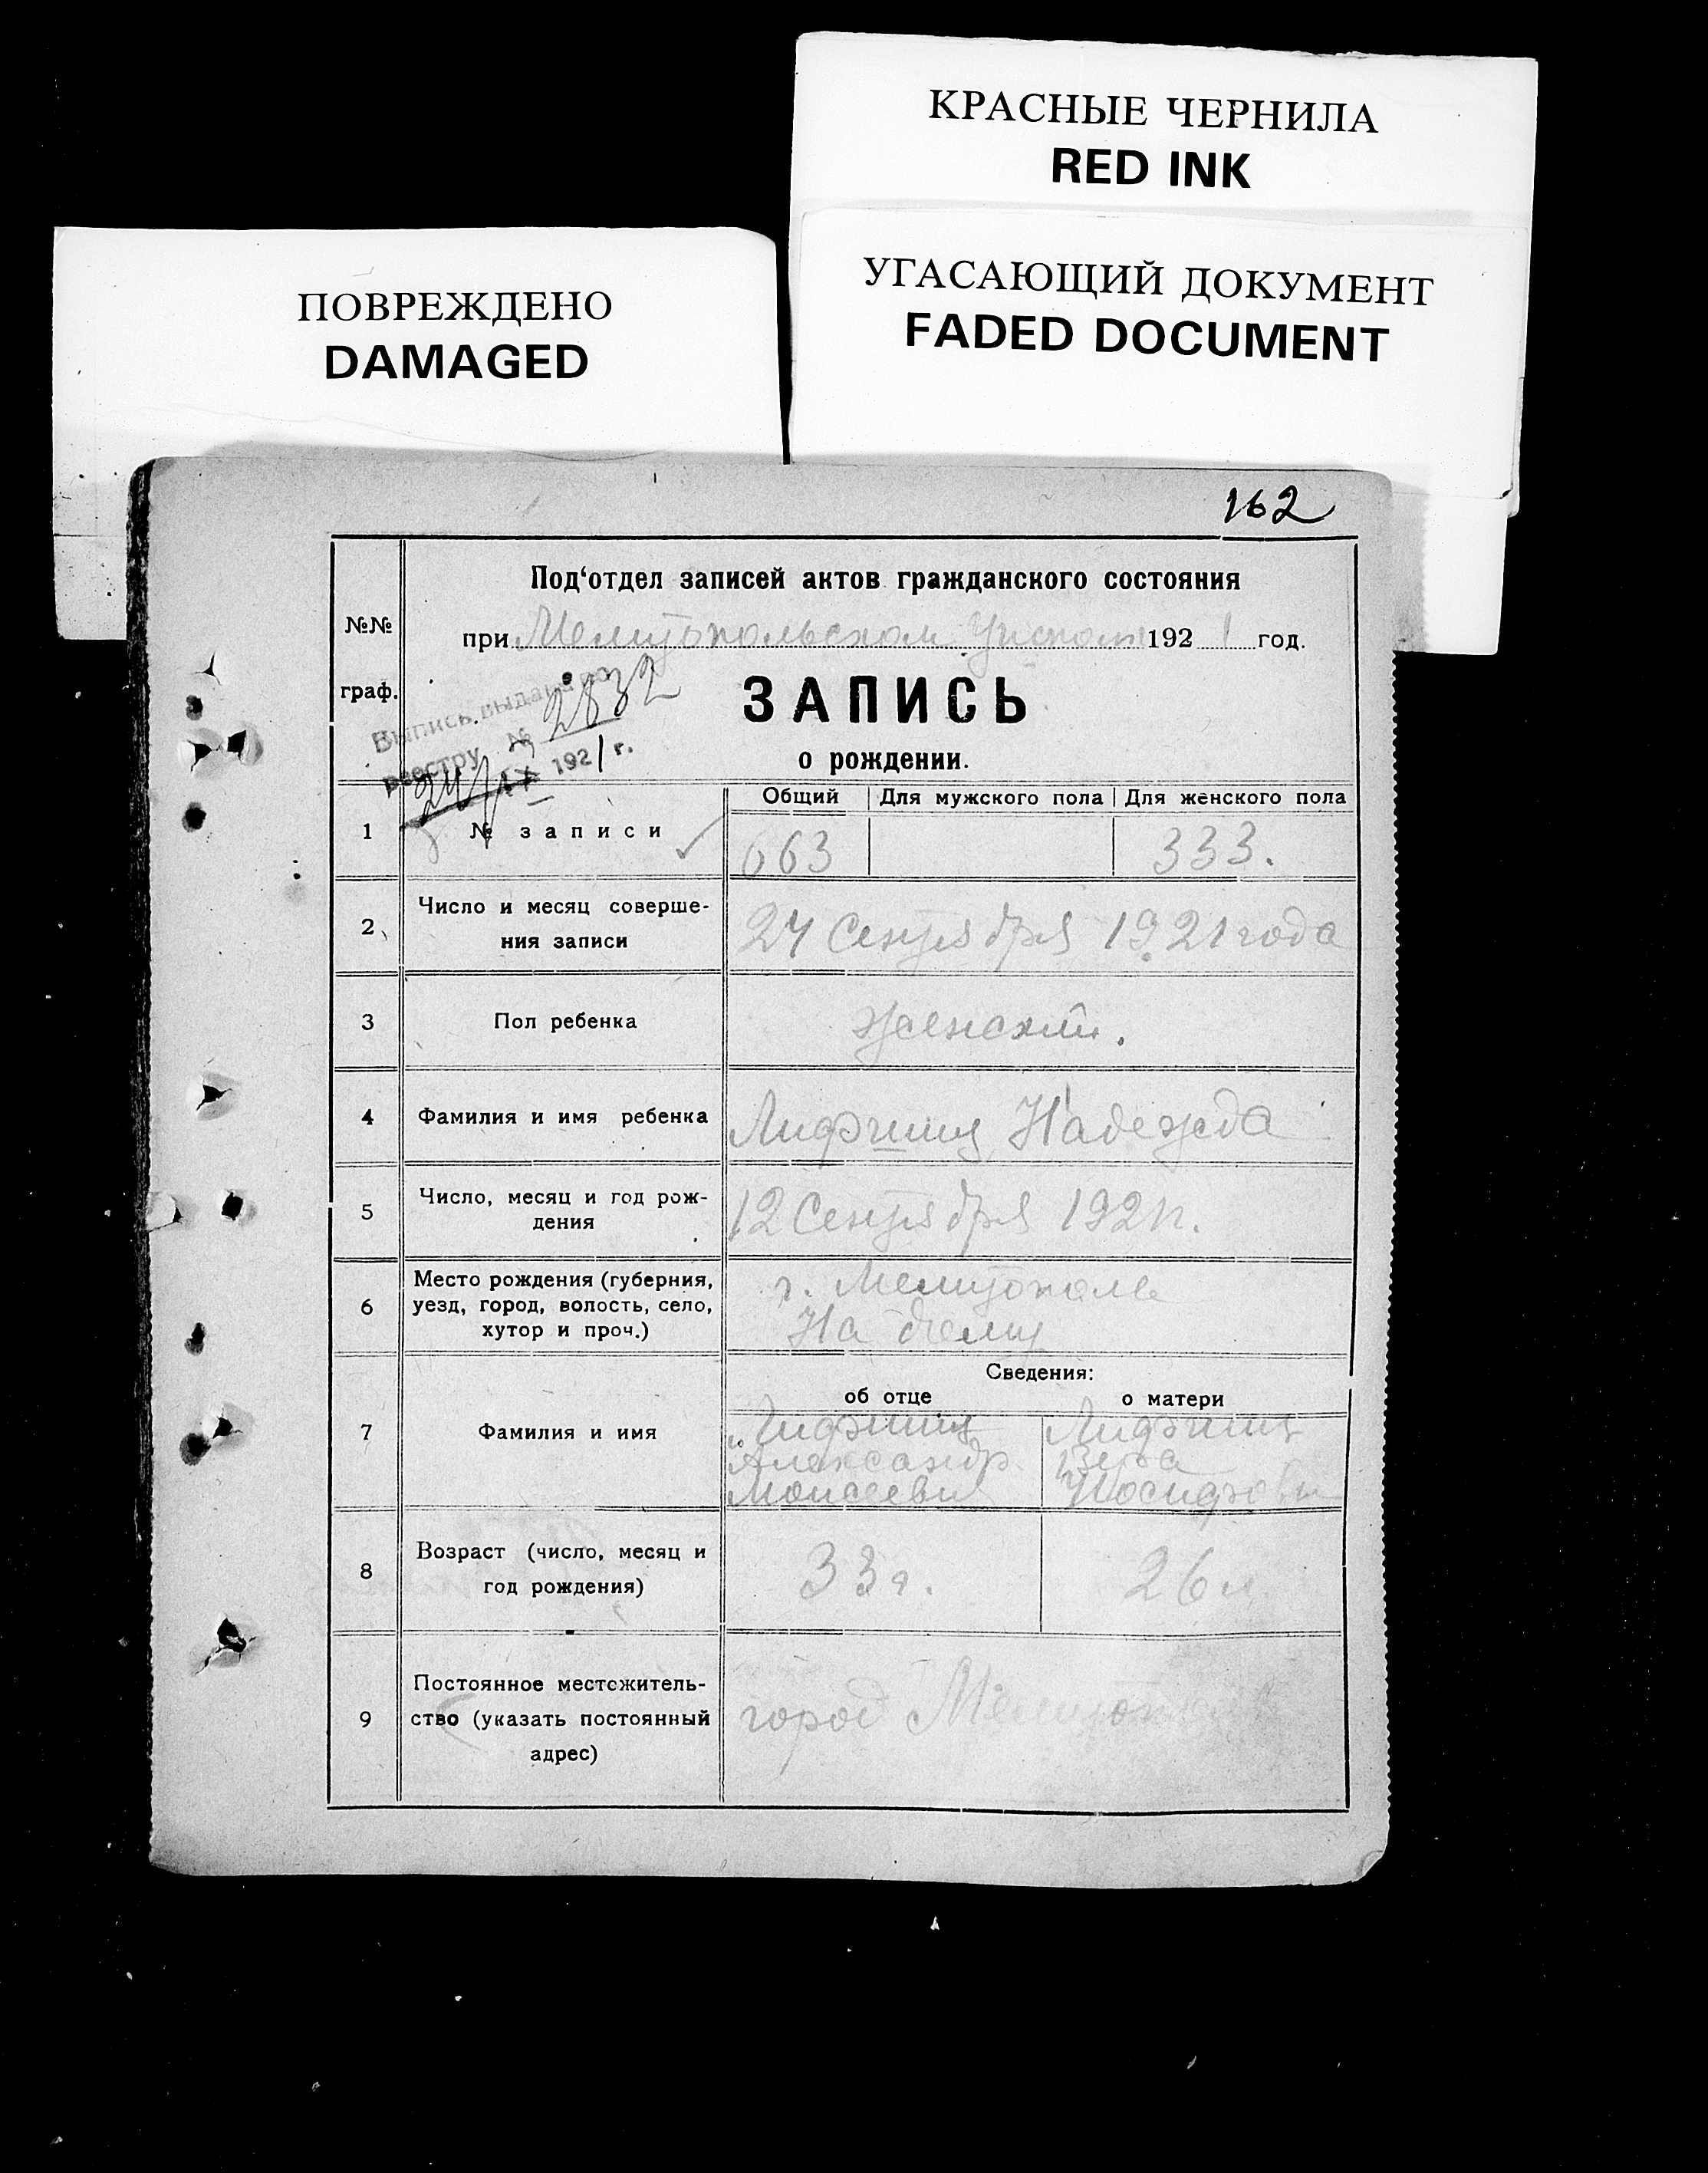 КРАСНЫЕ ЧЕРНИЛА
RED INK
УГАСАЮЩИЙ ДОКУМЕНТ
FADED DOCUMENT
ПОВРЕЖДЕНО
DAMAGED
162
№№
граф.
Под‘отдел записей актов гражданского состояния
при Мелитопольском Уисполк 1921 год.
Выпись выдана по
реестру № 2832
24/IX 1921 г.
ЗАПИСЬ
о рождении.
Общий Для мужского пола Для женского пола
1 № записи 663 333.
2 Число и месяц соверше-
ния записи
24 Сентября 1921 года
3 Пол ребенка Женский.
4 Фамилия и имя ребенка Лифшиц Надежда
5 Число, месяц и год рож-
дения
12 Сентября 1921 г.
6 Место рождения (губерния,
уезд, город, волость, село,
хутор и проч.)
г. Мелитополь
На дому
Сведения:
об отце о матери
7 Фамилия и имя
Лифшиц
Александр
Моисеевич
Лифшиц
Вера
Иосифовн
8 Возраст (число, месяц и
год рождения)
33 г. 26 л
9 Постоянное местожитель-
ство (указать постоянный
адрес)
город Мелитополь